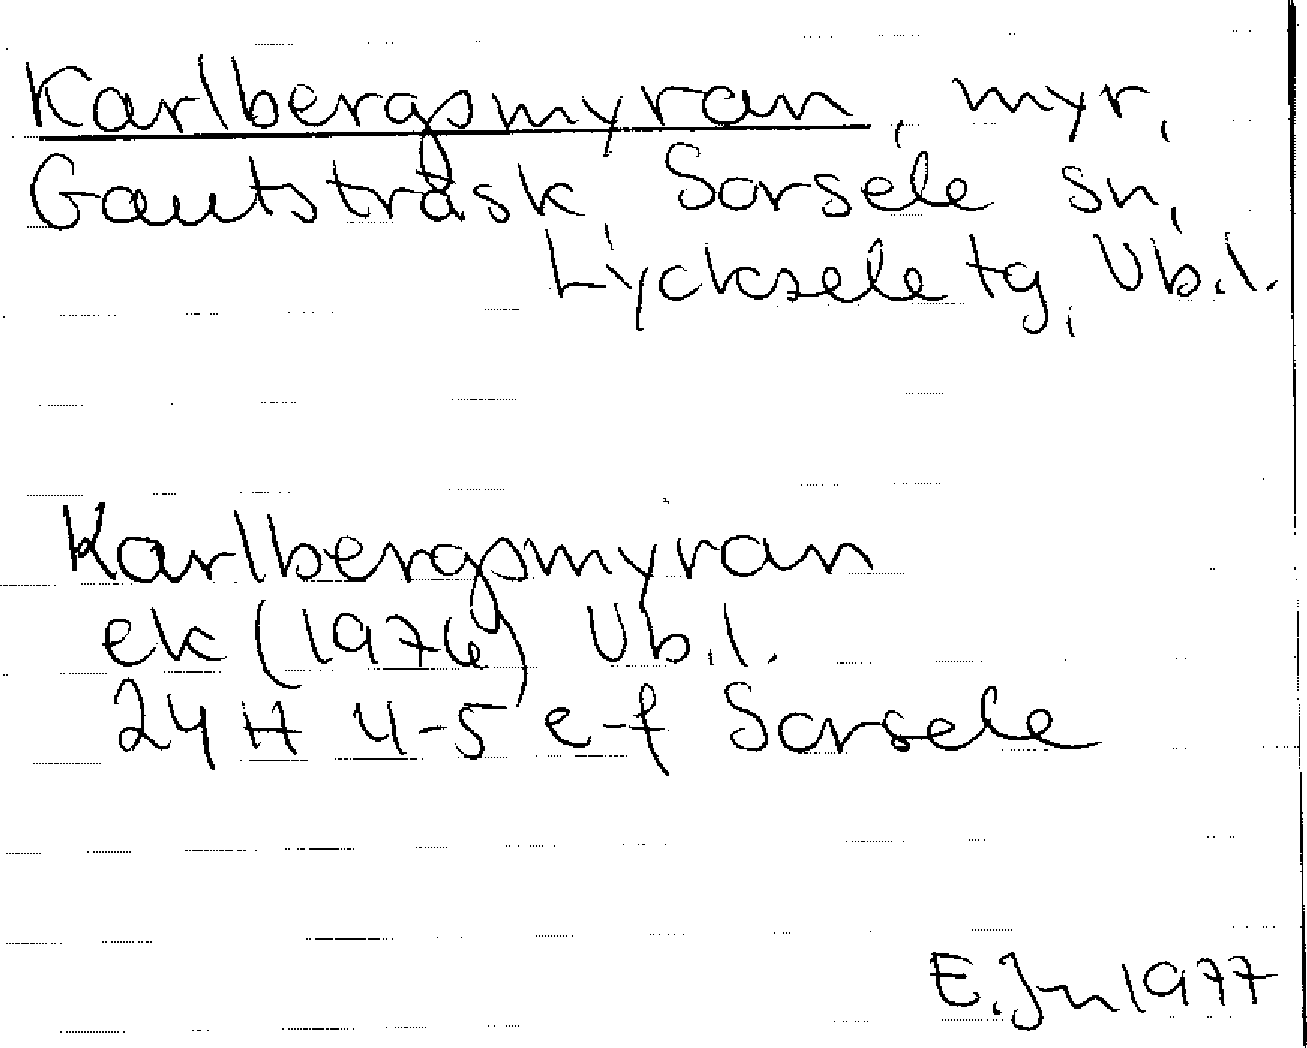 Karlbergsmyran, myr,
Gautsträsk, Sorsele sn,
Lycksele tg, Vb.l.
Karlbergsmyran
ek (1976) Vb.l.
24 H 4-5 e-f Sorsele
E. Jn 1977